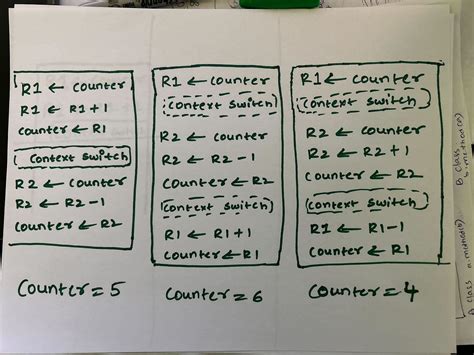 R1 ← counter
R1 ← R1 + 1
counter ← R1
Context switch
R2 ← counter
R2 ← R2 - 1
counter ← R2
Counter = 5
R1 ← counter
Context switch
R2 ← counter
R2 ← R2 - 1
Counter ← R2
Context switch
R1 ← R1 + 1
Counter ← R1
Counter = 6
R1 ← counter
Context switch
R2 ← counter
R2 ← R2 + 1
Counter ← R2
Context switch
R1 ← R1 - 1
Counter ← R1
Counter = 4
B class
A class